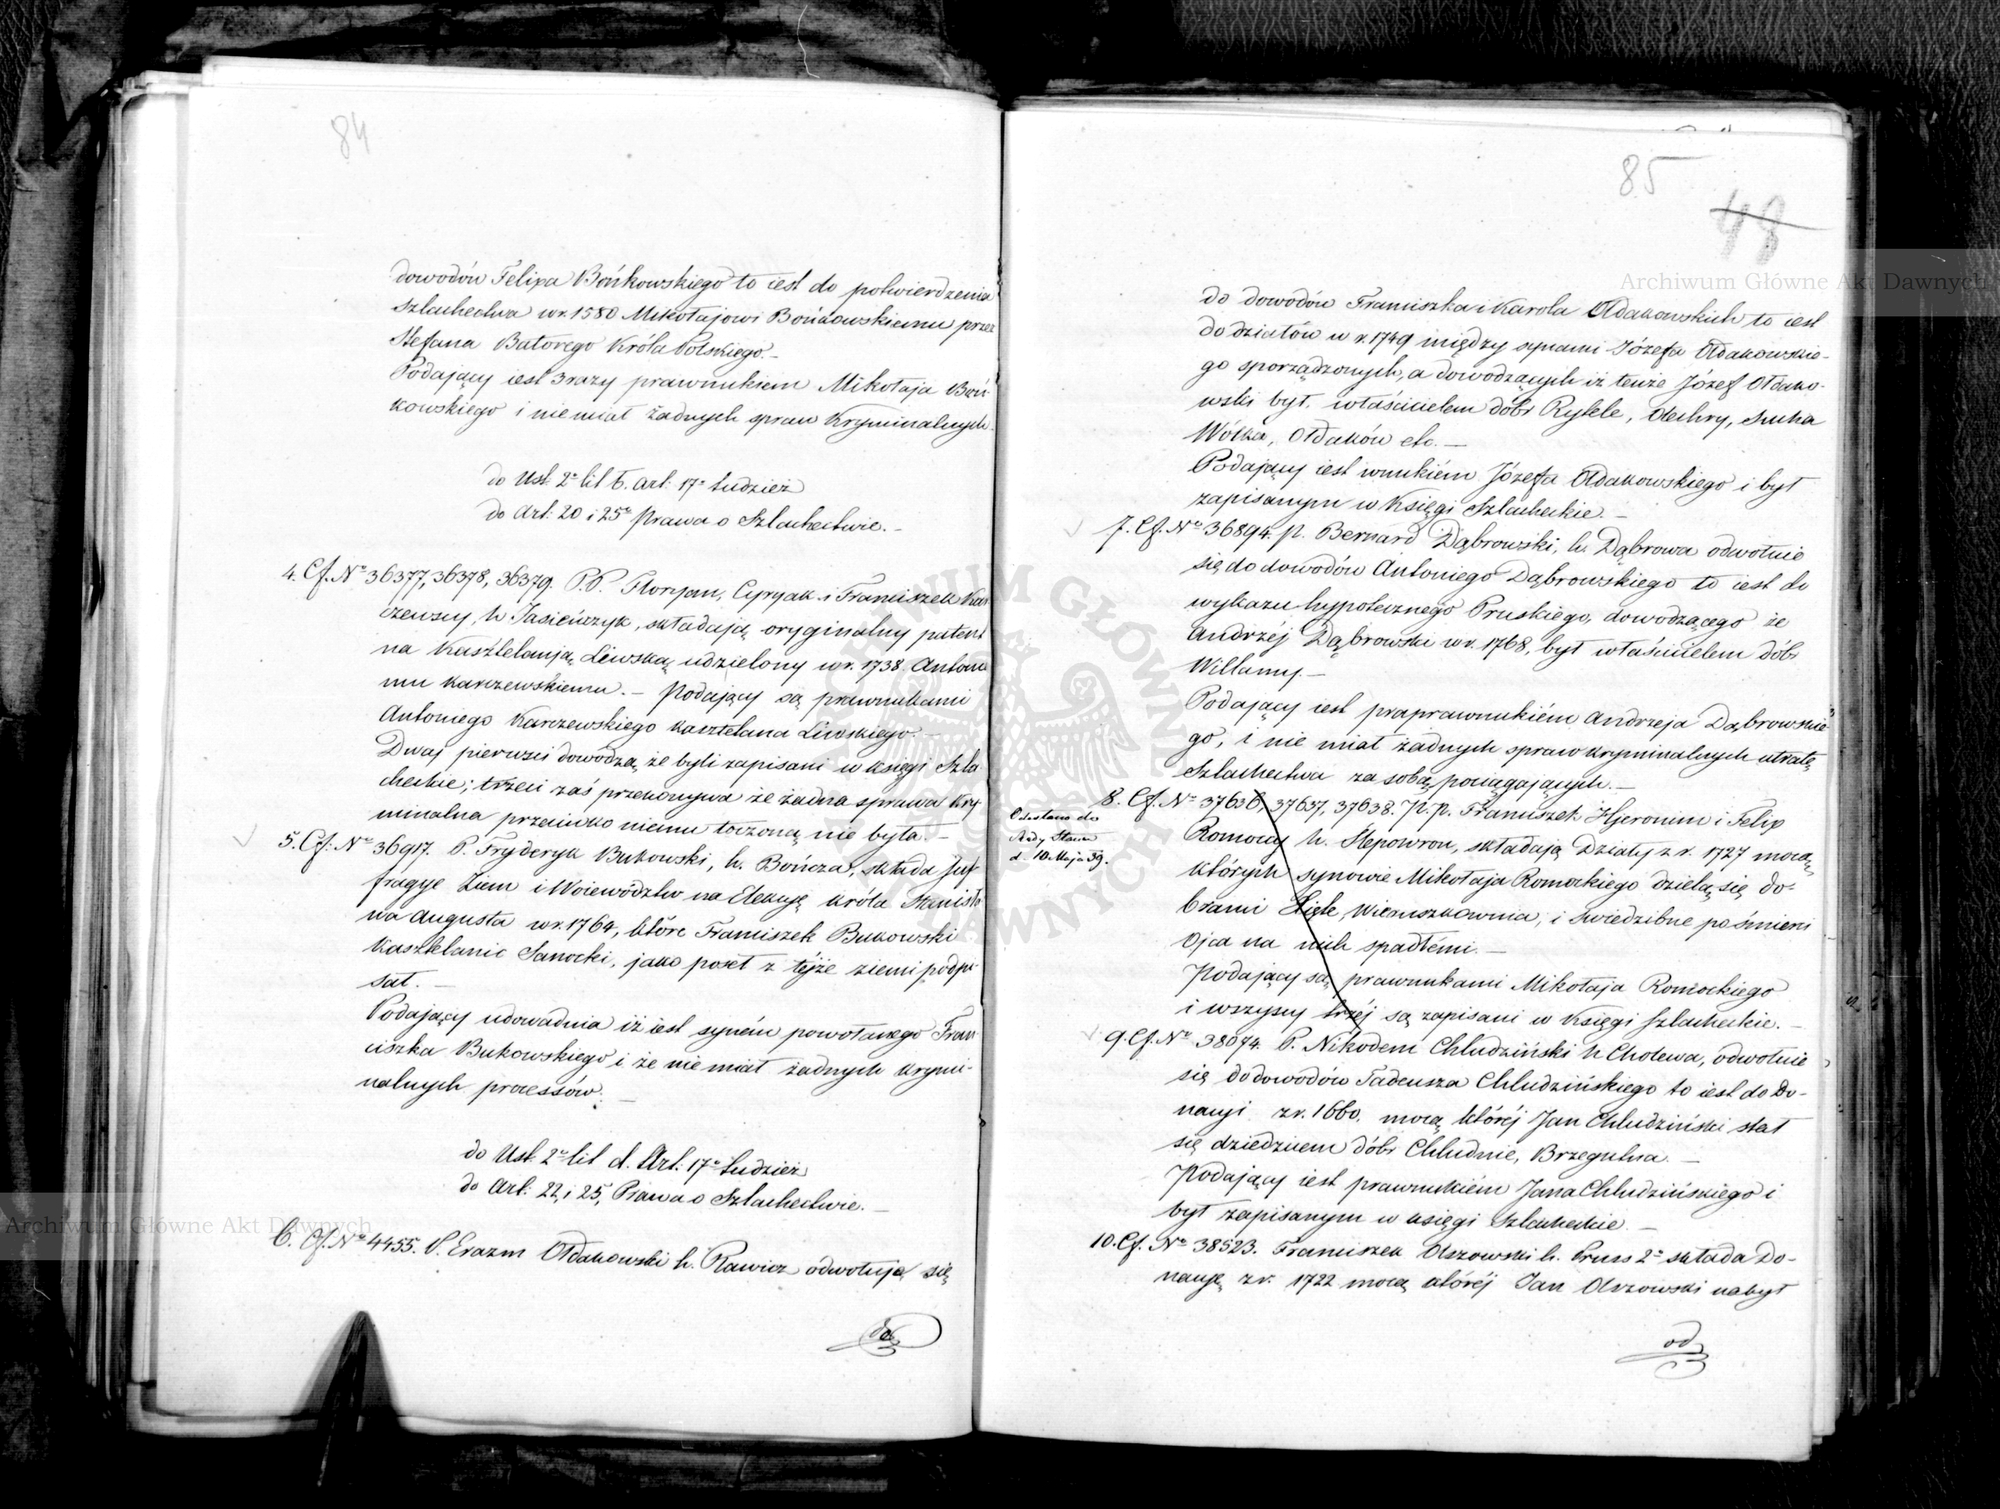 84
dowodów Felixa Bońkowskiego to iest do potwierdzenia
Szlachectwa w r. 1580 Mikołajowi Bońkowskiemu przez
Stefana Batorego Króla Polskiego.-
Podaiący iest 3 razy prawnukiem Mikołaja Boń-
kowskiego i nie miał żadnych spraw Kryminalnych.
do Ust. 2° lit b. art: 17° tudzież
do Art: 20 i 25° Prawa o Szlachectwie.-
4. Cf. No 36377, 36378, 36379. P.P. Floryan, Cyryak i Franciszek Kar-
czewscy, h. Jasieńczyk, składaią oryginalny patent
na Kasztelanją Liwską udzielony w r. 1738. Antonie
mu Karczewskiemu.- Podaiący są prawnukami
Antoniego Karczewskiego kasztelana Liwskiego.-
Dwaj pierwsi dowodzą, że byli zapisani w księgi Szla
checkie; trzeci zaś przekonywa że żadna sprawa Kry-
minalna przeciwko niemu toczoną nie była.-
5. Cf: No 36917. P. Fryderyk Bukowski, h. Bończa, składa Suf-
fragye Ziem i Woiewództw na Elekcyę króla Stanisła
wa Augusta w r. 1764, które Franciszek Bukowski
Kasztelanic Sanocki, jako poseł z tejże ziemi podpi-
sał.-
Podaiący udowadnia iż iest synem powołanego Fran-
ciszka Bukowskiego i że nie miał żadnych krymi-
nalnych processów.-
do Ust: 2° lit d. Art: 17° tudzież
do Art: 22, i 25, Prawa o Szlachectwie.-
6. Cf. No 4455. P. Erazm Ołdakowski h. Rawicz odwołuje się
do
85
48
Archiwum Główne Akt Dawnych
do dowodów Franciszka i Karola Ołdakowskich to iest
do działów w r. 1749 między synami Józefa Ołdakowskie-
go sporządzonych, a dowodzących iż tenże Józef Ołdako-
wski był właścicielem dóbr Rytele, Olechny, Sucha
Wólka, Ołdaków etc.-
Podaiący iest wnukiem Józefa Ołdakowskiego i był
zapisanym w Księgi Szlacheckie.-
7. Cf. No 36894. p. Bernard Dąbrowski, h. Dąbrowa odwołuie
się do dowodów Antoniego Dąbrowskiego to iest do
wykazu hypotecznego Pruskiego, dowodzącego że
Andrzéj Dąbrowski w r. 1768, był właścicielem dóbr
Willamy.-
Podaiący iest praprawnukiém Andrzeja Dąbrowskie-
go, i nie miał żadnych spraw kryminalnych utratę
Szlachectwa za sobą pociągaiących.-
8. Cf. No 37636, 37637, 37638. P.p. Franciszek Hjeronim i Felix
Odesłano do
Rady Stanu
d. 10 Maja 39.
Romoccy h. Ślepowron, składaią Działy z r. 1727 mocą
których synowie Mikołaja Romockiego dzielą się do-
brami Wieruszkownia, i Swiedzibne po śmierci
Ojca na nich spadłemi.-
Podaiący są prawnukami Mikołaja Romockiego
i wszyscy trzej są zapisani w Księgi Szlacheckie.-
9. Cf. No 38074. P. Nikodem Chludziński h Cholewa, odwołuie
się do dowodów Tadeusza Chludzińskiego to iest do Do-
nacyi z r. 1660. mocą któréj Jan Chludziński stał
się dziedzicem dóbr Chludnie, Brzegulna.-
Podaiący iest prawnukiem Jana Chludzińskiego i
był zapisanym w księgi Szlacheckie.-
10. Cf. No 38523. Franciszek Olszowski h. Pruss 2° składa Do-
nacyę z r. 1722 mocą któréj Jan Olszowski nabył
od
Archiwum Główne Akt Dawnych